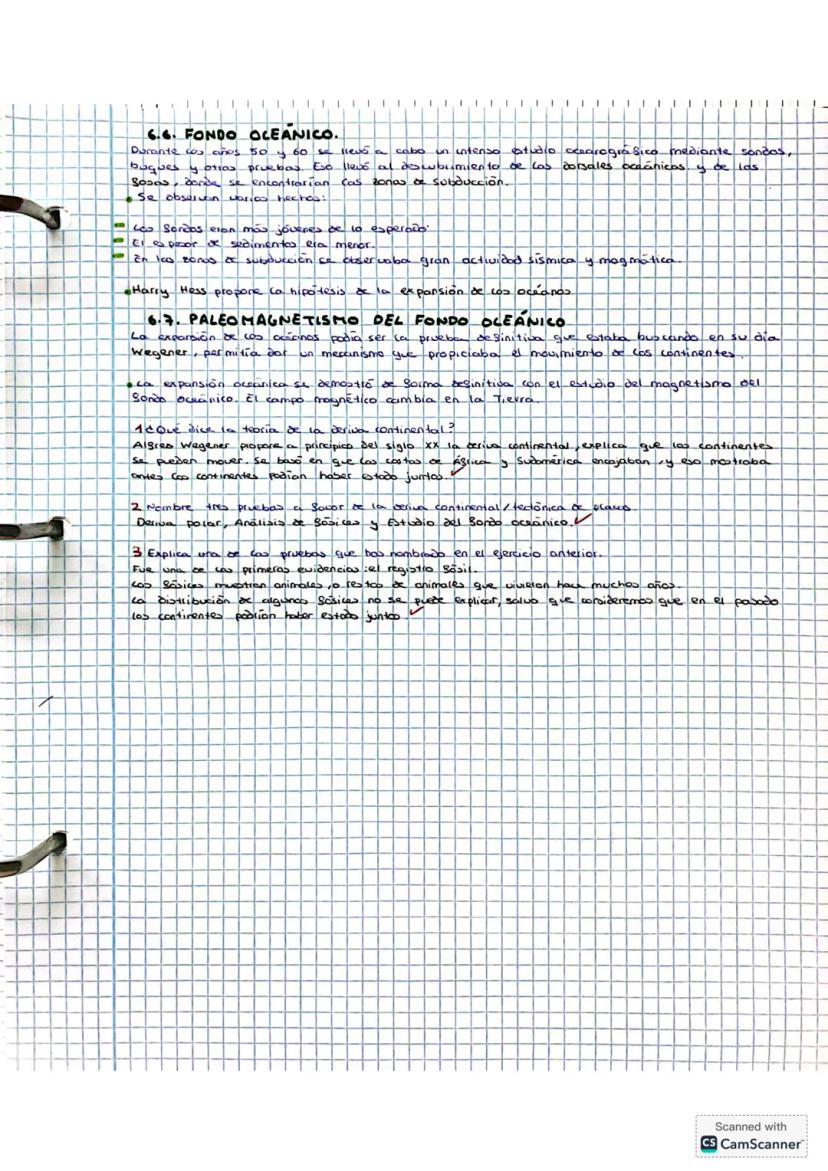 6.6. FONDO OCEÁNICO.
Durante los años 50 y 60 se llevó a cabo un intenso estudio oceanográfico mediante sondas,
buques y otras pruebas. Eso llevó al descubrimiento de las dorsales oceánicas y de las
fosas, donde se encontrarían las zonas de subducción.
• Se observan varios hechos:
- Los fondos eran más jóvenes de lo esperado.
- El espesor de sedimentos era menor.
- En las zonas de subducción se observaba gran actividad sísmica y magmática.
• Harry Hess propone la hipótesis de la expansión de los océanos
6.7. PALEOMAGNETISMO DEL FONDO OCEÁNICO
La expansión de los océanos podía ser la prueba definitiva que estaba buscando en su día
Wegener, permitía dar un mecanismo que propiciaba el movimiento de los continentes.
• La expansión oceánica se demostró de forma definitiva con el estudio del magnetismo del
fondo oceánico. El campo magnético cambia en la Tierra.
1 ¿Qué dice la teoría de la deriva continental?
Alfred Wegener propone a principico del siglo XX la deriva continental, explica que los continentes
se pueden mover. Se basó en que las costas de África y Sudamérica encajaban, y eso mostraba
antes los continentes podían haber estado juntos.
2 Nombre tres pruebas a favor de la deriva continental/tectónica de placas.
Deriva polar, Análisis de fósiles y Estudio del fondo oceánico.
3 Explica una de las pruebas que has nombrado en el ejercicio anterior.
Fue una de las primeras evidencias: el registro fósil.
Los fósiles muestran animales, o restos de animales que vivieron hace muchos años.
La distribución de algunos fósiles no se puede explicar, salvo que consideremos que en el pasado
los continentes podrían haber estado juntos.
Scanned with
CS CamScanner